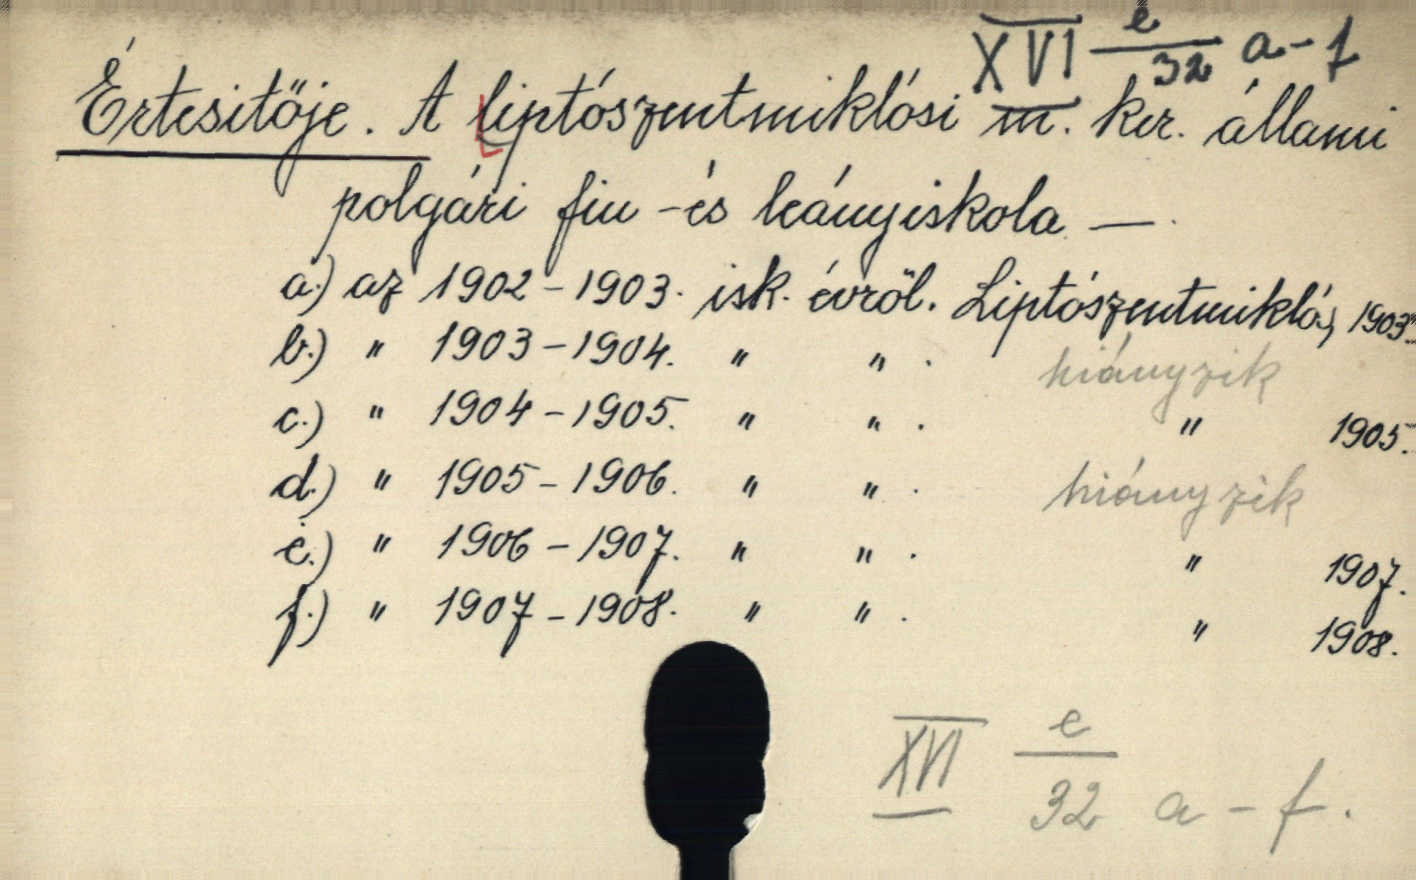 XVI e/32 a-f
Értesitője. A liptószentmiklósi m. kir. állami
polgári fiu -és leányiskola —.
a.) az 1902-1903. isk. évről. Liptószentmiklós, 1903.
b.) " 1903-1904. " " . hiányzik
c.) " 1904-1905. " " . " 1905.
d.) " 1905-1906. " " . hiányzik
e.) " 1906-1907. " " . " 1907.
f.) " 1907-1908. " " . " 1908.
XVI e/32 a-f.